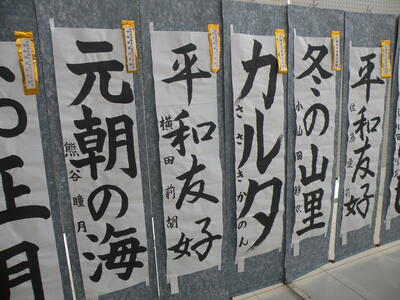 お正月
元朝の海
熊谷瞳月
平和友好
横田莉胡
カルタ
ささきかのん
冬の山里
小山田
平和友好